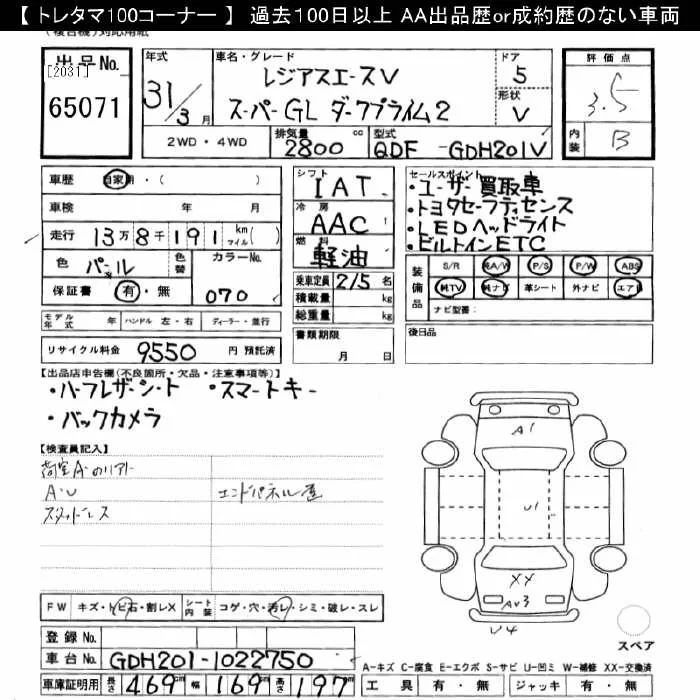 【 トレタマ100コーナー 】 過去100日以上 AA出品歴or成約歴のない車両
(複合機)対応用紙
出品No.
[2031]
65071
年式
31/3月
車名・グレード
レジアスエースV
スーパーGL ダークプライム2
ドア
5
形状
V
2WD・4WD
排気量 cc
2800
型式
QDF -GDH201V
評価点
3.5
内装
B
車歴 自家用・( )
車検 年 月
走行 13万8千191 km マイル( )
色 パール 色替 カラーNo.
保証書 有・無 070
モデル年式 年 ハンドル 左・右 ディーラー・並行
リサイクル料金 9550 円 預託済
シフト
IAT
冷房
AAC
燃料
軽油
乗車定員 2/5 名
積載量 kg
総重量 kg
書類期限
月 日
セールスポイント
・ユーザー買取車
・トヨタセーフティセンス
・LEDヘッドライト
・ビルトインETC
装備品
S/R 純A/W P/S P/W ABS
純TV 純ナビ 革シート 外ナビ エアB
ナビ型番:
後日品
【出品店申告欄(不良箇所・欠品・注意事項等)】
・ハーフレザーシート ・スマートキー
・バックカメラ
【検査員記入】
荷室A・のリアー
A・U エンドパネル歪
スタッドレス
A1
U1
XX
AU3
U4
スペア
FW キズ・トビ石・割レX シート内装 コゲ・穴・汚レ・シミ・破レ・スレ
登録 No.
車台 No. GDH201-1022750
車庫証明用 長さ 469 cm 幅 169 cm 高さ 197 cm
A-キズ C-腐食 E-エクボ S-サビ U-凹ミ W-補修 XX-交換済
工具 有・無 ジャッキ 有・無